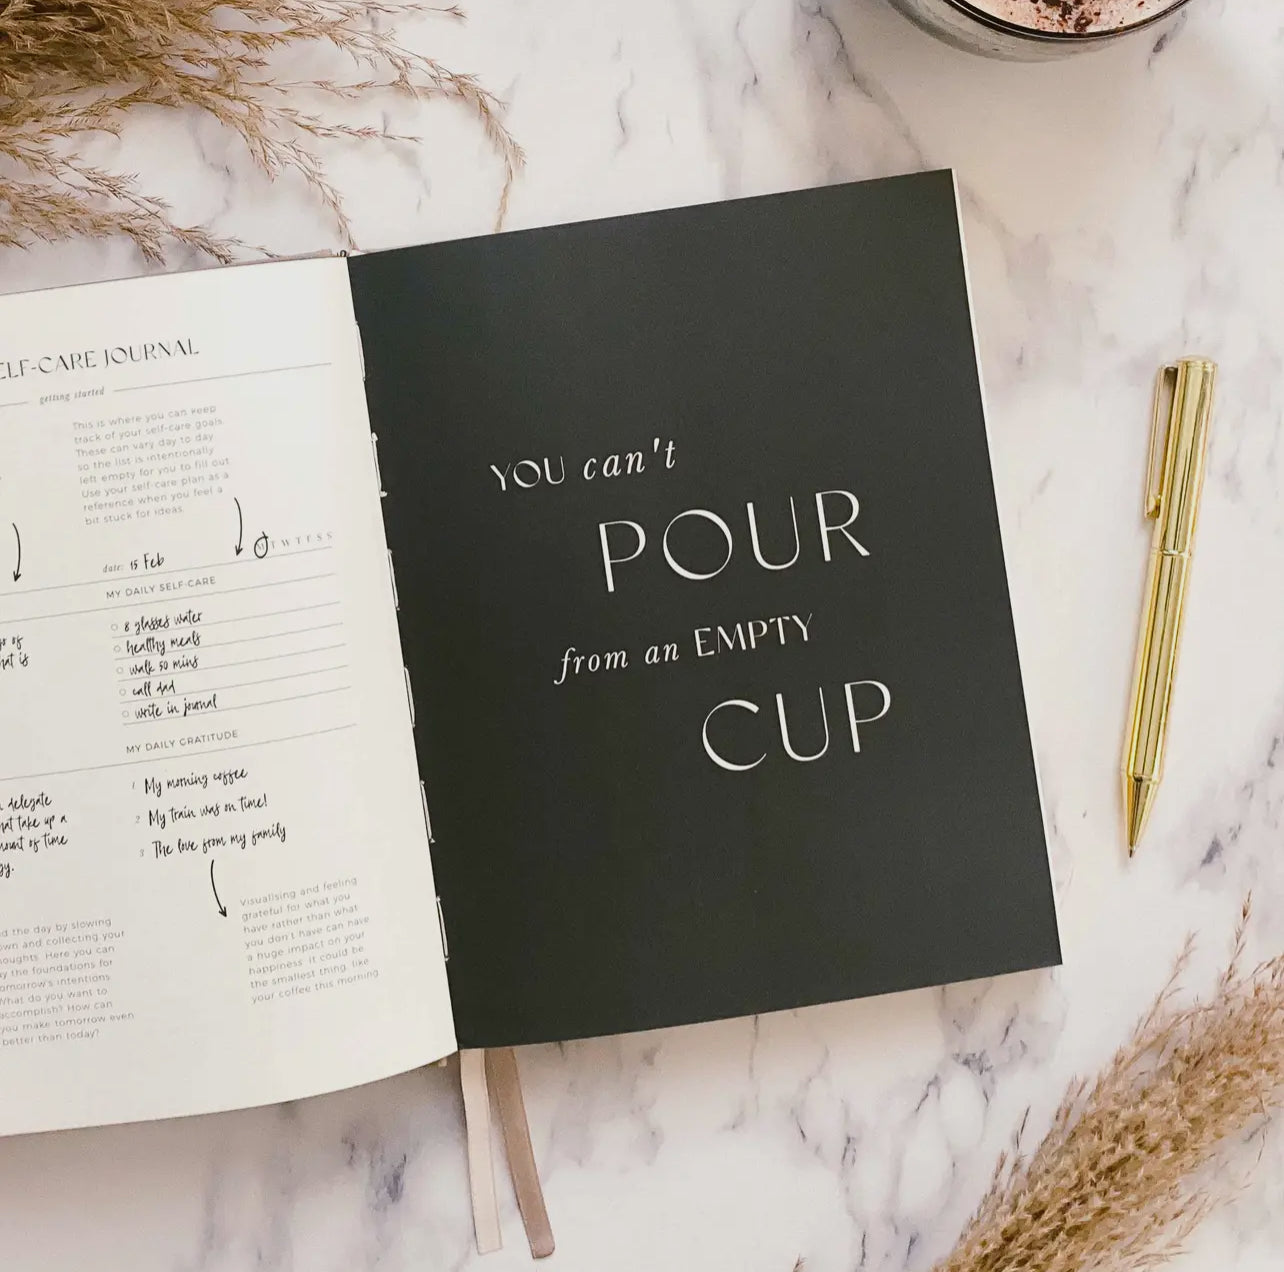 ELF-CARE JOURNAL
getting started
This is where you can keep
track of your self-care goals.
These can vary day to day
so the list is intentionally
left empty for you to fill out.
Use your self-care plan as a
reference when you feel a
bit stuck for ideas.
date: 15 Feb
M T W T F S S
MY DAILY SELF-CARE
8 glasses water
healthy meals
walk 50 mins
call dad
write in journal
MY DAILY GRATITUDE
1 My morning coffee
2 My train was on time!
3 The love from my family
Visualising and feeling
grateful for what you
have rather than what
you don't have can have
a huge impact on your
happiness. It could be
the smallest thing, like
your coffee this morning
of
at is
delegate
hat take up a
mount of time
gy.
d the day by slowing
own and collecting your
houghts. Here you can
y the foundations for
omorrow's intentions.
What do you want to
accomplish? How can
you make tomorrow even
better than today?
YOU can't
POUR
from an EMPTY
CUP